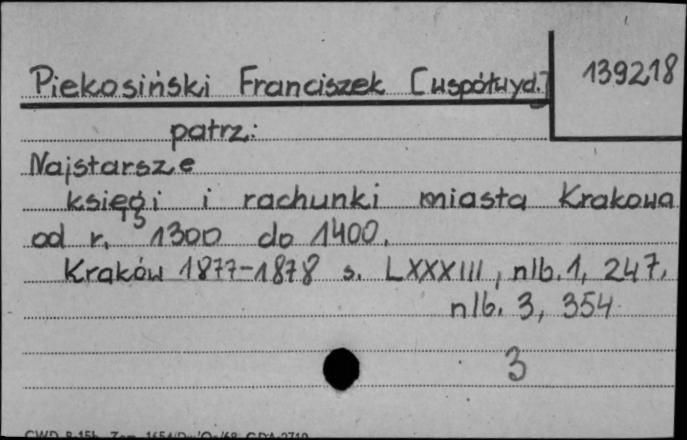 Piekosiński Franciszek [współwyd.] 139218
patrz:
Najstarsze
księgi i rachunki miasta Krakowa
od r. 1300 do 1400.
Kraków 1877-1878 s. LXXXIII, nlb. 1, 247,
nlb. 3, 354
3